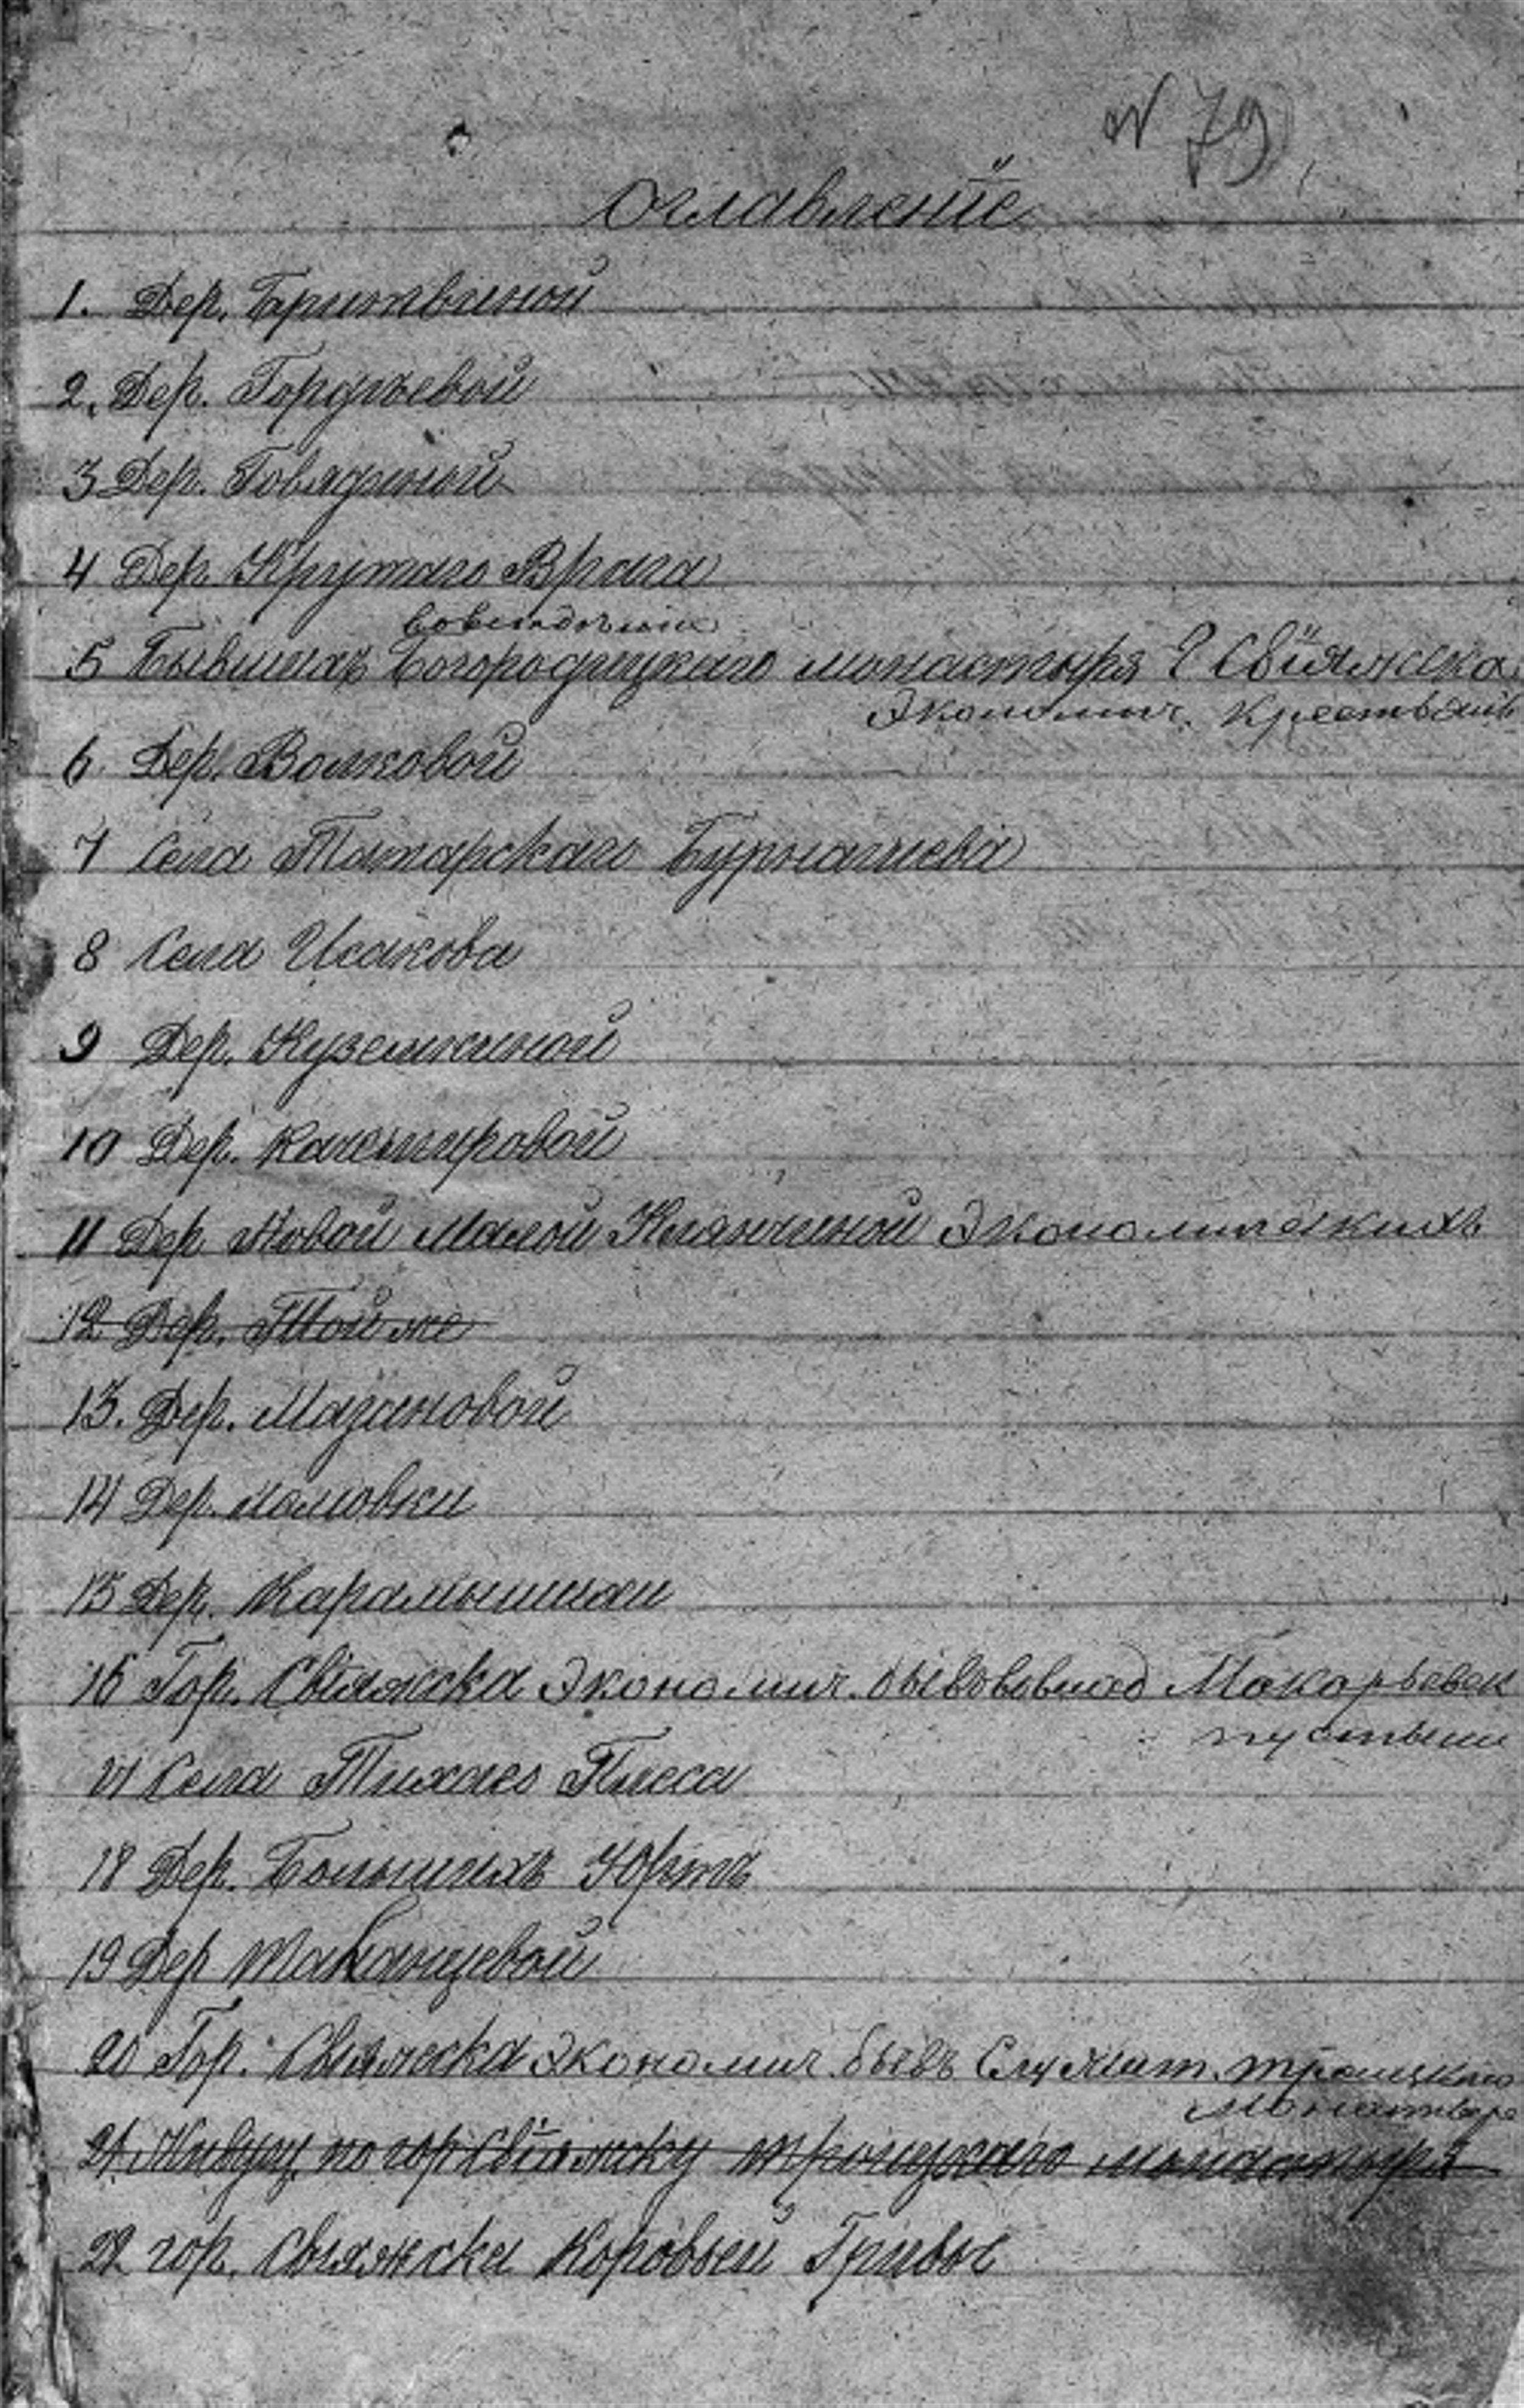 N 79
Оглавленіе
1. Дер. Бритвиной
2. Дер. Гордѣевой
3 Дер. Говядиной
4 Дер. Крутаго Врага
5 Бывшихъ Богородицкаго монастыря г Свіяжска
Экономич. крестьянъ
6. Дер. Волковой
7 Села Татарскаго Бурнашева
8 Села Исакова
9 Дер. Куземкиной
10 Дер. Качемировой
11 Дер Новой Малой Киянчиной Экономическихъ
12 Дер. Той же
13. Дер. Мазановой
14 Дер. Маловки
15 Дер. Карамышихи
16 Гор. Свіяжска Экономич. Макарьевск
пустыни
17 Села Тихаго Плеса
18 Дер. Большихъ Юртъ
19 Дер Маканцевой
20 Гор. Свіяжска Экономич. бывъ Служит. Троицкаго
Монастыря
21. по гор Свіяжску Троицкаго монастыря
22 гор. Свіяжска Коровьей Гривы